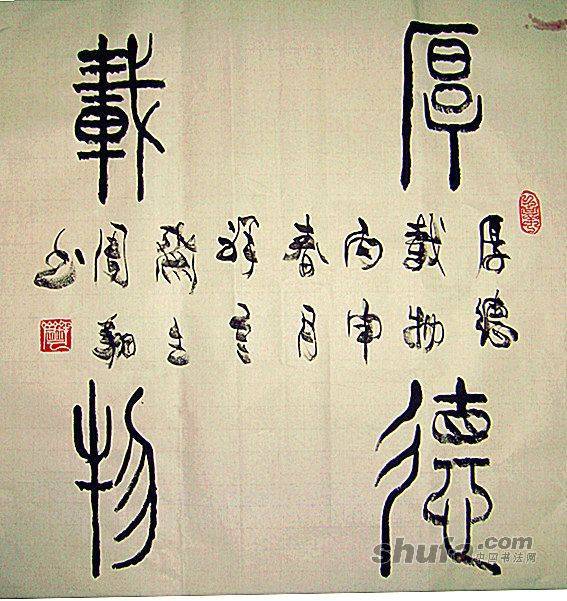 厚德
載物
厚德
載物
丙申
春月
主
書
shufa.com
中国书法网